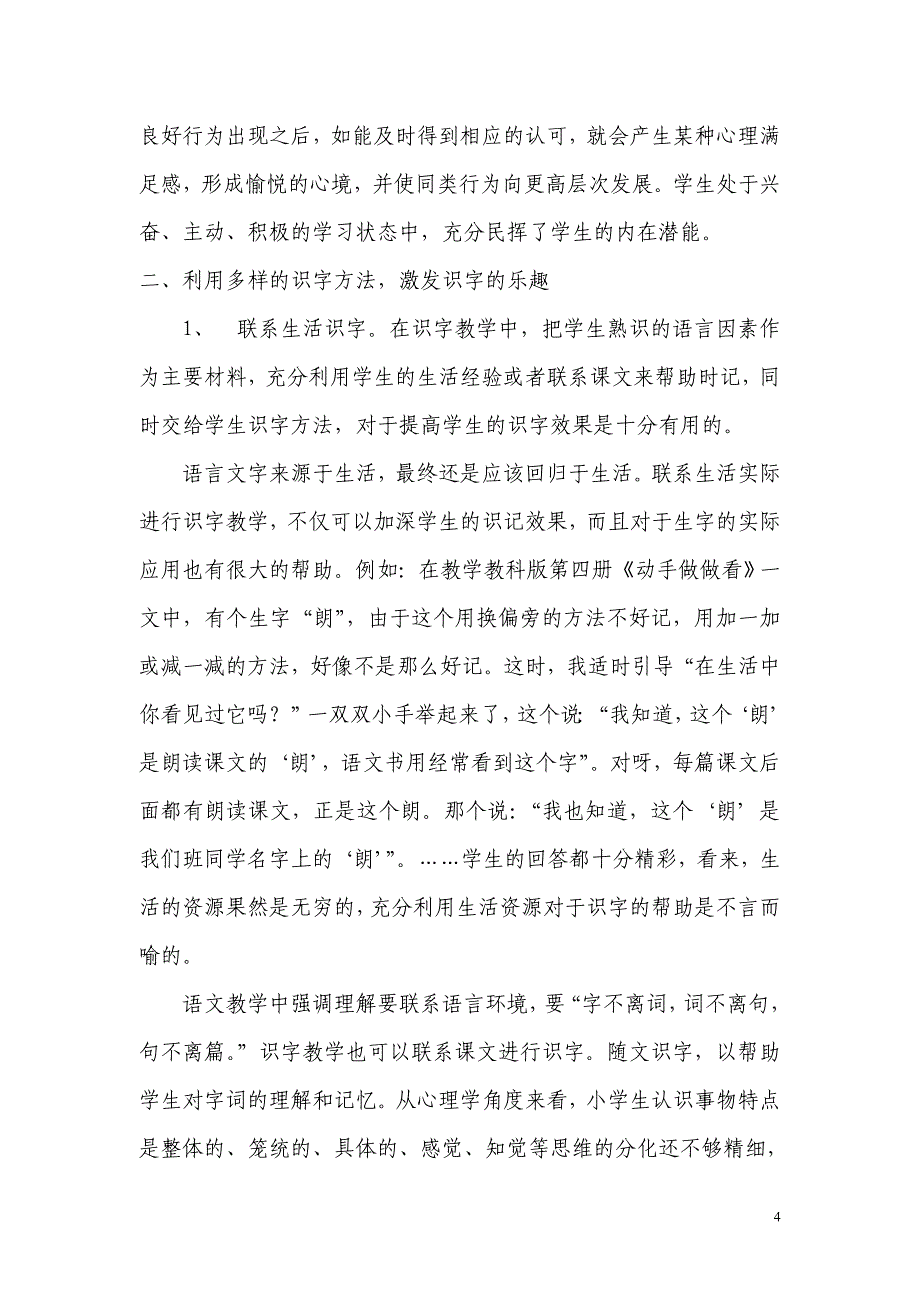 良好行为出现之后，如能及时得到相应的认可，就会产生某种心理满
足感，形成愉悦的心境，并使同类行为向更高层次发展。学生处于兴
奋、主动、积极的学习状态中，充分民挥了学生的内在潜能。
二、利用多样的识字方法，激发识字的乐趣
1、 联系生活识字。在识字教学中，把学生熟识的语言因素作
为主要材料，充分利用学生的生活经验或者联系课文来帮助时记，同
时交给学生识字方法，对于提高学生的识字效果是十分有用的。
语言文字来源于生活，最终还是应该回归于生活。联系生活实际
进行识字教学，不仅可以加深学生的识记效果，而且对于生字的实际
应用也有很大的帮助。例如：在教学教科版第四册《动手做做看》一
文中，有个生字“朗”，由于这个用换偏旁的方法不好记，用加一加
或减一减的方法，好像不是那么好记。这时，我适时引导“在生活中
你看见过它吗？”一双双小手举起来了，这个说：“我知道，这个‘朗’
是朗读课文的‘朗’，语文书用经常看到这个字”。对呀，每篇课文后
面都有朗读课文，正是这个朗。那个说：“我也知道，这个‘朗’是
我们班同学名字上的‘朗’”。……学生的回答都十分精彩，看来，生
活的资源果然是无穷的，充分利用生活资源对于识字的帮助是不言而
喻的。
语文教学中强调理解要联系语言环境，要“字不离词，词不离句，
句不离篇。”识字教学也可以联系课文进行识字。随文识字，以帮助
学生对字词的理解和记忆。从心理学角度来看，小学生认识事物特点
是整体的、笼统的、具体的、感觉、知觉等思维的分化还不够精细，
4